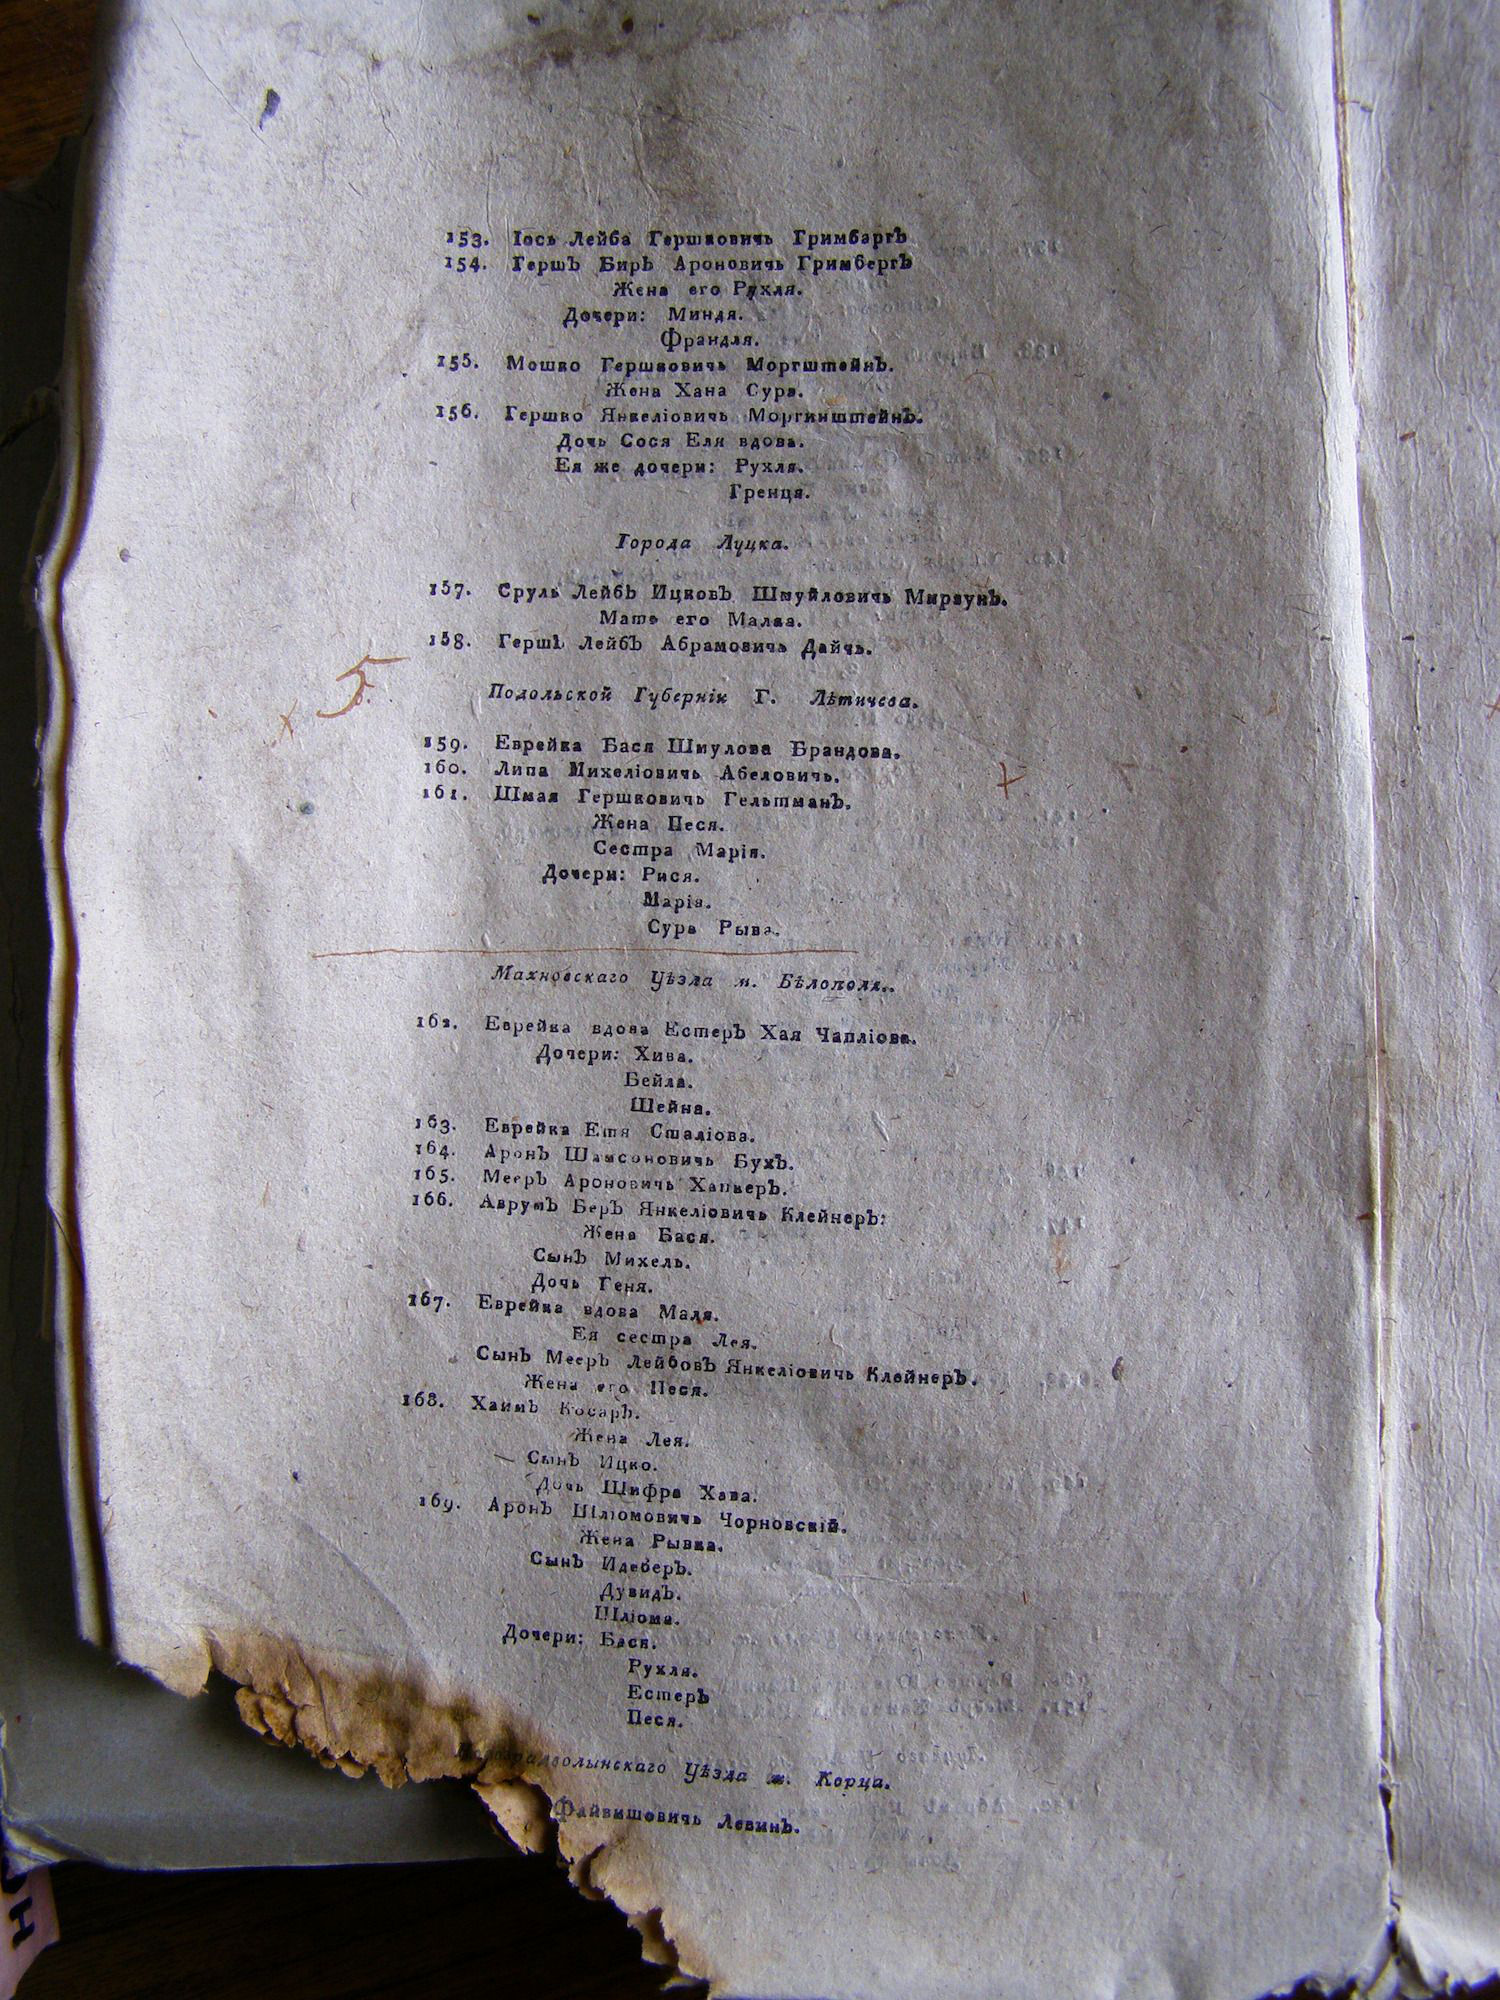 153. Іось Лейба Гершковичь Гримбаргъ
154. Гершъ Биръ Ароновичь Гримбергъ
Жена его Рухля.
Дочери: Миндя.
Франдля.
155. Мошко Гершковичь Моргштейнъ.
Жена Хана Сура.
156. Гершко Янкеліовичь Моргинштейнъ.
Дочь Сося Еля вдова.
Ея же дочери: Рухля.
Гренця.
Города Луцка.
157. Сруль Лейбъ Ицковъ Шмуйловичь
Мать его Малка.
158. Гершъ Лейбъ Абрамовичь Дайчь.
5
Подольской Губерніи Г. Лѣтичева.
159. Еврейка Бася Шмулова Брандова.
160. Липа Михеліовичь Абеловичь.
161. Шмая Гершковичь Гельтманъ.
Жена Песя.
Сестра Марія.
Дочери: Рися.
Марія.
Сура Рыва.
Махновскаго Уѣзда м. Бѣлополя.
162. Еврейка вдова Естеръ Хая Чапліова.
Дочери: Хива.
Бейла.
Шейна.
163. Еврейка Етя Сталіова.
164. Аронъ Шамсоновичь Бухъ.
165. Мееръ Ароновичь
166. Аврумъ Беръ Янкеліовичь Клейнеръ:
Жена Бася.
Сынъ Михель.
Дочь Геня.
167. Еврейка вдова Маля.
Ея сестра Лея.
Сынъ Мееръ Лейбовъ Янкеліовичь Клейнеръ.
Жена его Песя.
168. Хаимъ Косаръ.
Жена Лея.
Сынъ Ицко.
Дочь Шифра Хава.
169. Аронъ Шліомовичь Чорновскій.
Жена Рывка.
Сынъ Идеберъ.
Дувидъ.
Шліома.
Дочери: Бася.
Рухля.
Естеръ
Песя.
Уѣзда м. Корца.
Файвишовичь Левинъ.